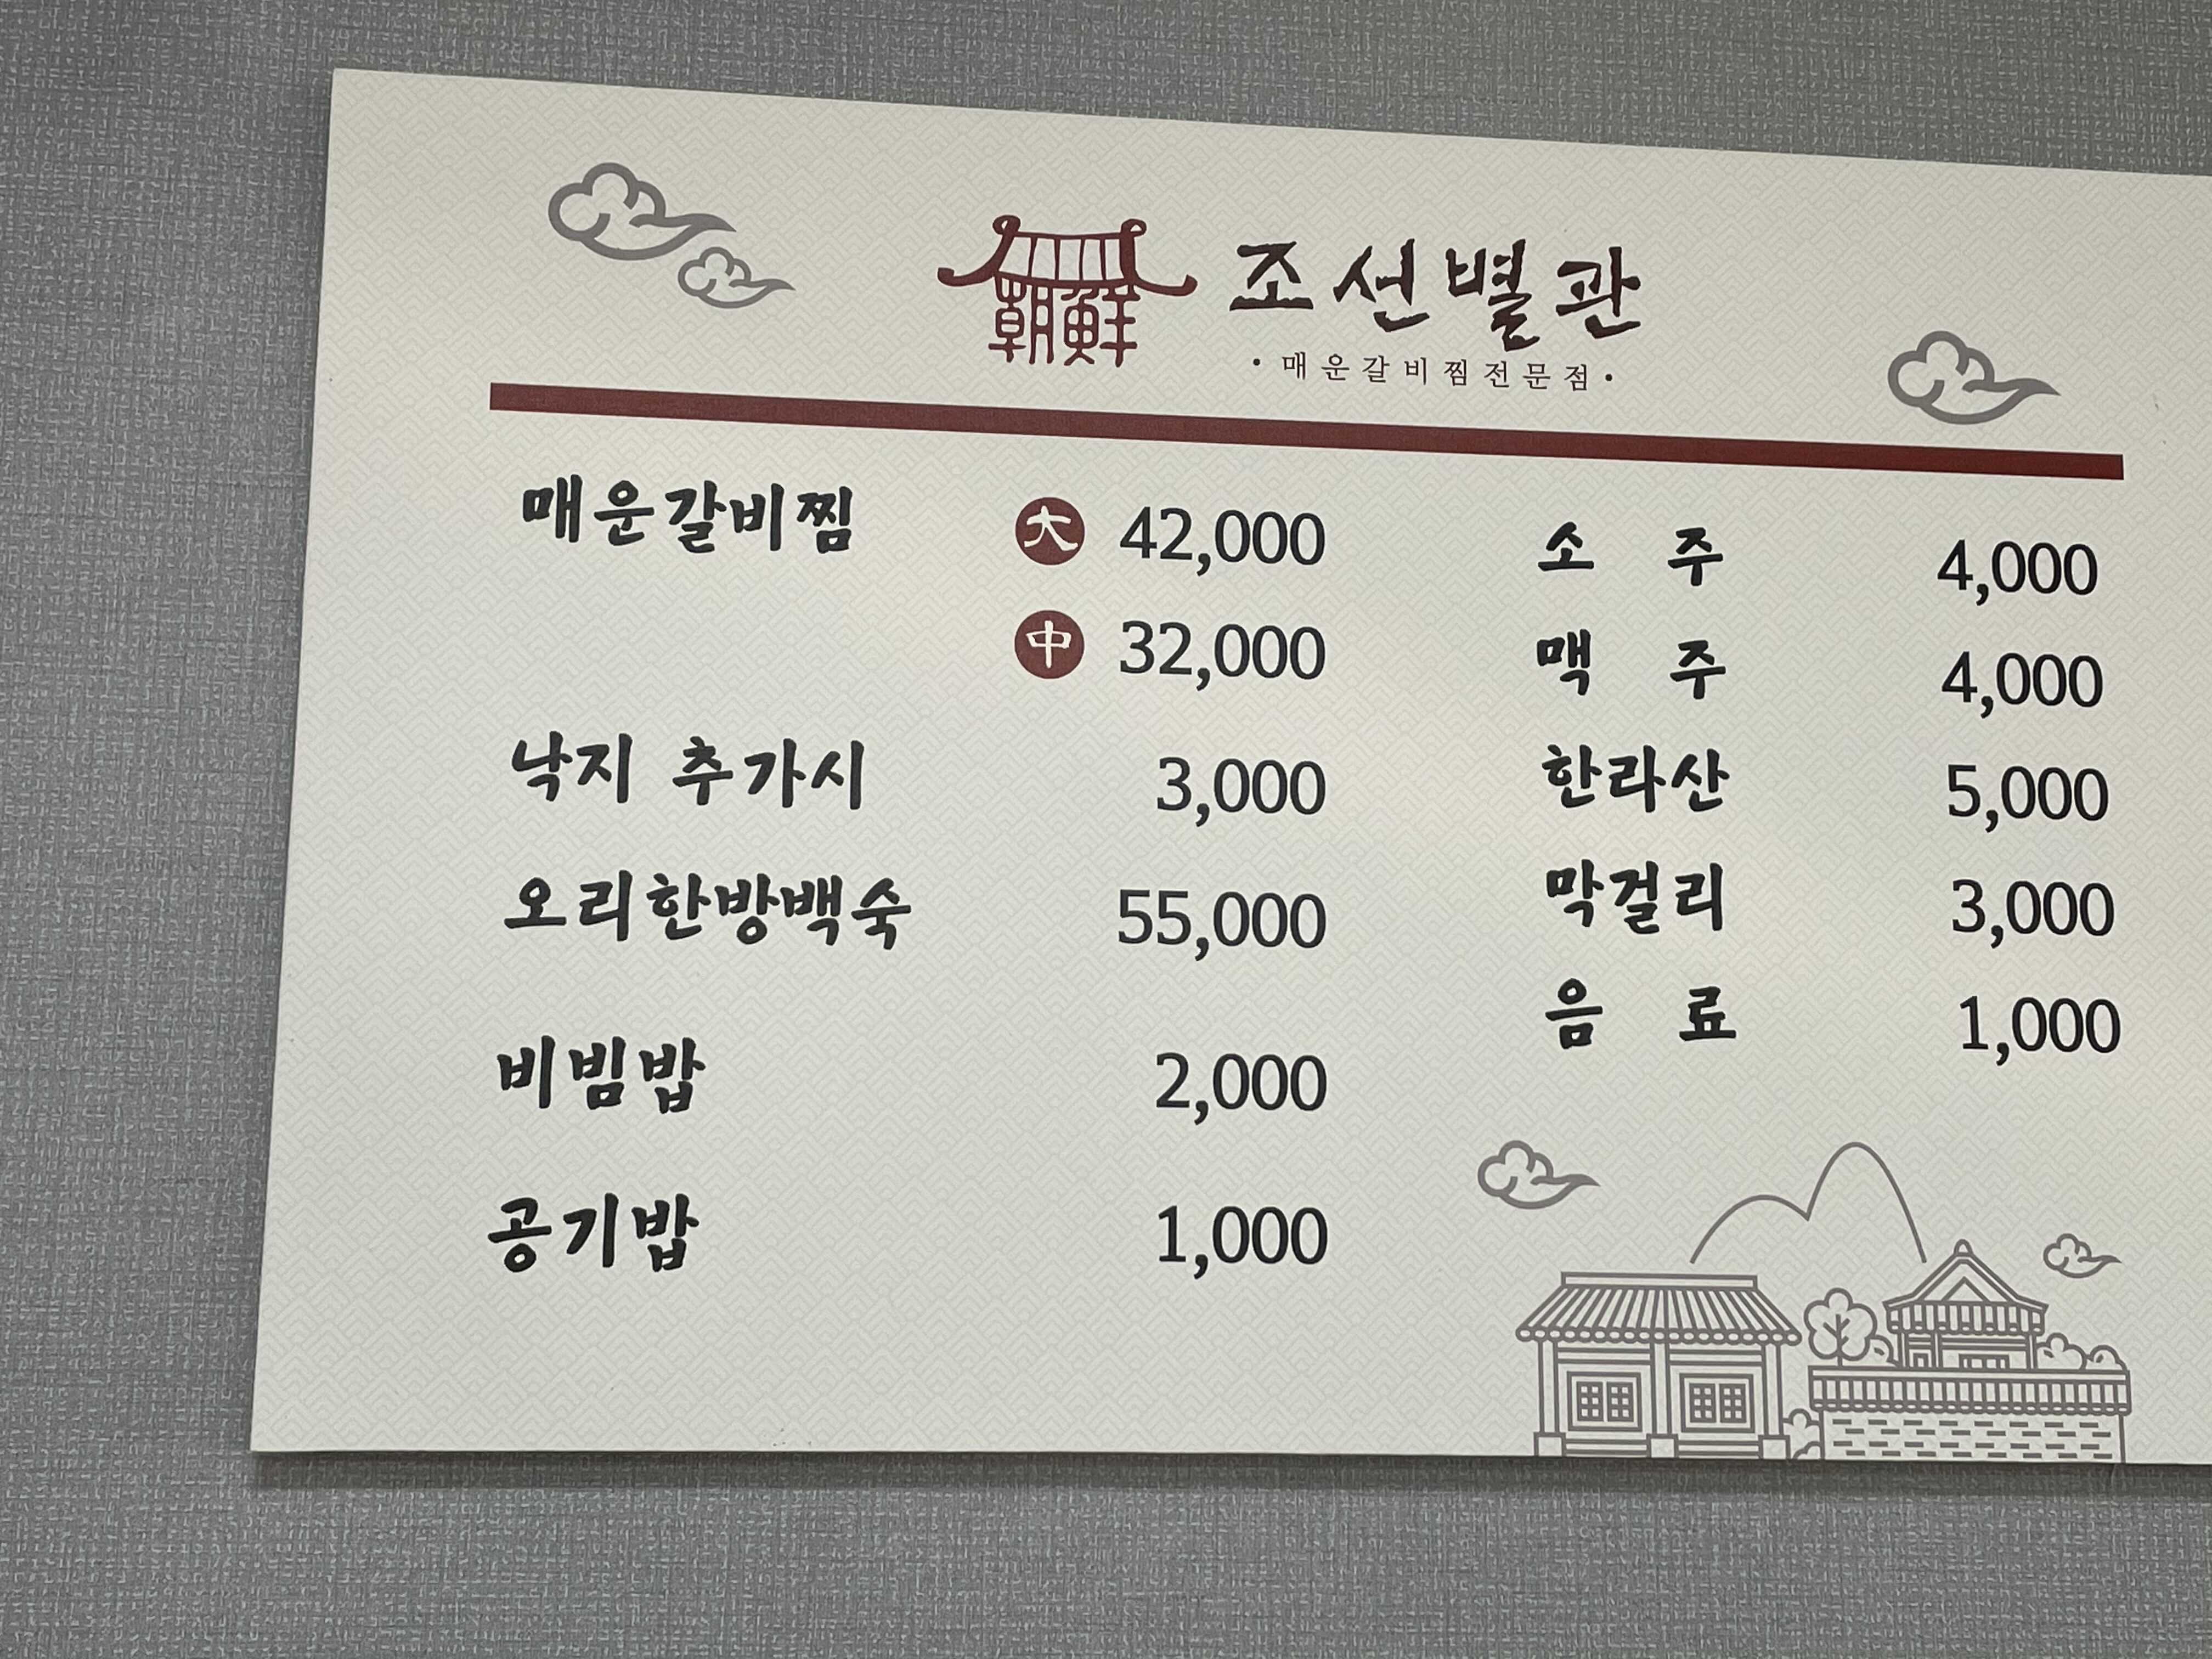 朝鮮 조선별관
·매운갈비찜전문점·
매운갈비찜 大 42,000
中 32,000
낙지 추가시 3,000
오리한방백숙 55,000
비빔밥 2,000
공기밥 1,000
소 주 4,000
맥 주 4,000
한라산 5,000
막걸리 3,000
음 료 1,000